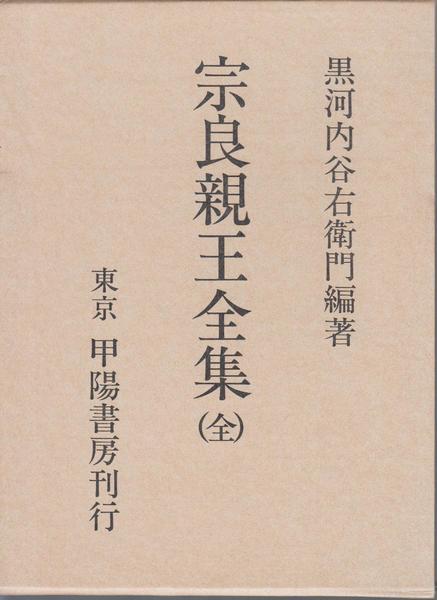 黒河内谷右衛門編著
宗良親王全集(全)
東京 甲陽書房刊行